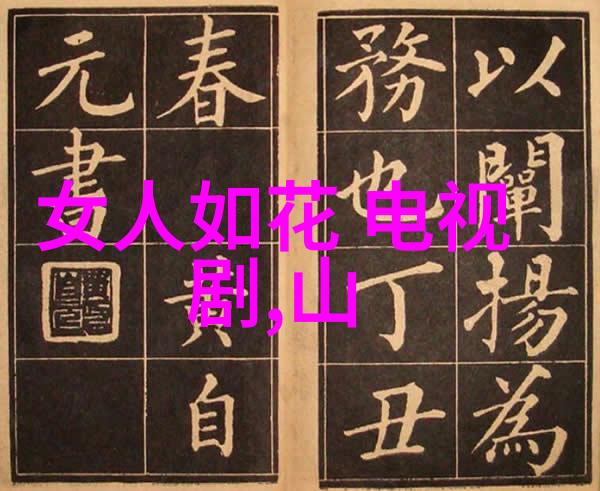 以闡揚為
務也丁丑
春黄自
元書
女人如花 电视
剧,山